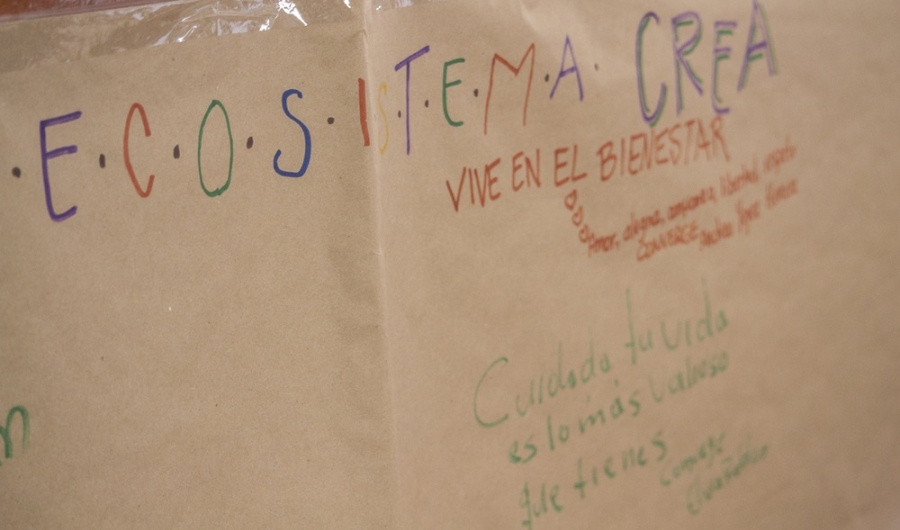 ·E·C·O·S·IS·T·E·M·A· CREA
VIVE EN EL BIENESTAR
Amor, alegria, armonia, libertad, respeto
CONVERGE
Cuidado tu vida
es lo más valioso
que tienes
Converge
n